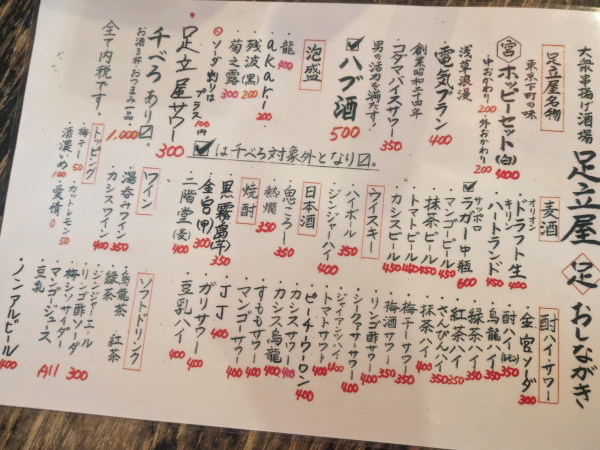 大衆串揚げ酒場 足立屋 足 おしながき
足立屋名物
東京下町の味
宮 ホッピーセット(白) 400
中おかわり 200 ・外おかわり 200
浅草浪漫
電気ブラン 400
創業昭和二十四年
コダマバイスサワー 350
男の活力を満たす!
☑ハブ酒 500
泡盛
・龍 400
・akari 200
・残波(黒) 200
・菊之露 300
◎ソーダ割りはプラス100円
足立屋サワー 300
☑は千べろ対象外となり〼。
千べろあり〼。
お酒3杯・おつまみ一品 1,000
全て内税です。
麦酒
・オリオン ドラフト生 400
・キリン ハートランド 450
☑サッポロ ラガー中瓶 600
・マンゴービール 450
・抹茶ビール 450
・トマトビール 450
・カシスビール 450
ウイスキー
・ハイボール 350
・ジンジャーハイ 400
日本酒
・鬼ころし 350
・熱燗 350
焼酎
・黒霧島(芋) 350
・金宮(甲) 300
・二階堂(麦) 400
ワイン
・湯呑みワイン 350
・カシスワイン 400
トッピング
・梅干し 50 ・カットレモン 50
・酒濃いめ 100 ・愛情 0
酎ハイ・サワー
・金宮ソーダ 300
・酎ハイ 350
・烏龍ハイ 350
・緑茶ハイ 350
・紅茶ハイ 350
・さんぴんハイ 350
・抹茶ハイ 400
・梅干サワー 350
・梅酒サワー 350
・リンゴ酢サワー 350
・シークァーサーサワー 400
・ジャイアンツハイ 400
・トマトサワー 400
・ピーチウーロン 400
・カシスサワー 400
・カシス烏龍 400
・すももサワー 400
・マンゴーサワー 400
・JJ 400
・ガリサワー 400
・豆乳ハイ 400
ソフトドリンク
・烏龍茶
・緑茶 ・紅茶
・ジンジャーエール
・リンゴ酢ソーダ
・梅シソサイダー
・マンゴージュース
・豆乳
All 300
・ノンアルビール 400